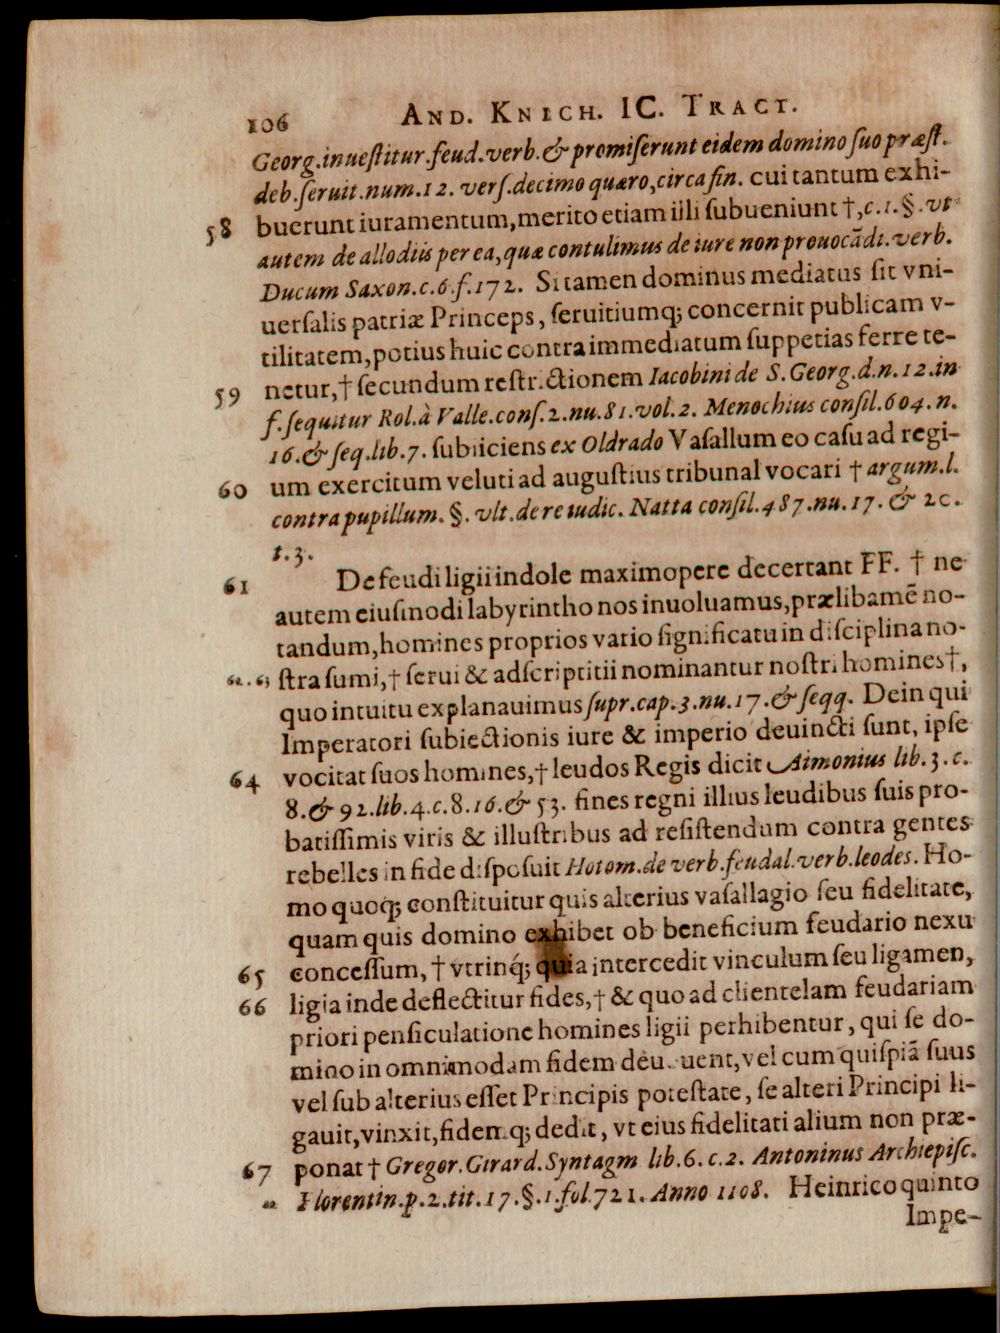 106 AND. KNICH. IC. TRACT.
Georg.inuestitur.feud.verb.& promiserunt eidem domino suo præst.
deb.seruit.num.12. vers.decimo quæro,circa fin. cui tantum exhi-
58 buerunt iuramentum,merito etiam illi subueniunt †,c.1.§.vt
autem de allodiis per ea,quæ contulimus de iure non prouocādi.verb.
Ducum Saxon.c.6.f.172. Si tamen dominus mediatus sit vni-
uersalis patriæ Princeps, seruitiumq; concernit publicam v-
tilitatem,potius huic contra immediatum suppetias ferre te-
59 netur,† secundum restrictionem Iacobini de S.Georg.d.n.12.in
f.sequitur Rol.à Valle.cons.2.nu.81.vol.2. Menochius consil.604.n.
16.& seq.lib.7. subiiciens ex Oldrado Vasallum eo casu ad regi-
60 um exercitum veluti ad augustius tribunal vocari † argum.l.
contra pupillum.§.vlt.de re iudic. Natta consil.487.nu.17.& 20.
t.3.
61 De feudi ligii indole maximopere decertant FF. † ne
autem eiusmodi labyrintho nos inuoluamus,prælibamē no-
tandum,homines proprios vario significatu in disciplina no-
62.63 stra sumi,† serui & adscriptitii nominantur nostri homines†,
quo intuitu explanauimus supr.cap.3.nu.17.& seqq. Dein qui
Imperatori subiectionis iure & imperio deuincti sunt, ipse
64 vocitat suos homines,† leudos Regis dicit Aimonius lib.3.c.
8.& 92.lib.4.c.8.16.& 53. fines regni illius leudibus suis pro-
batissimis viris & illustribus ad resistendum contra gentes
rebelles in fide disposuit Hotom.de verb.feudal.verb.leodes. Ho-
mo quoq; constituitur quis alterius vasallagio seu fidelitate,
quam quis domino exhibet ob beneficium feudario nexu
65 concessum, † vtrinq́; quia intercedit vinculum seu ligamen,
66 ligia inde deflectitur fides,† & quo ad clientelam feudariam
priori pensiculatione homines ligii perhibentur, qui se do-
mino in omnimodam fidem deuouent,vel cum quispiā suus
vel sub alterius esset Principis potestate, se alteri Principi li-
gauit,vinxit,fidemq; dedit, vt eius fidelitati alium non præ-
67 ponat † Gregor.Girard.Syntagm lib.6.c.2. Antoninus Archiepisc.
Florentin.p.2.tit.17.§.1.fol.721. Anno 1108. Heinrico quinto
Impe-